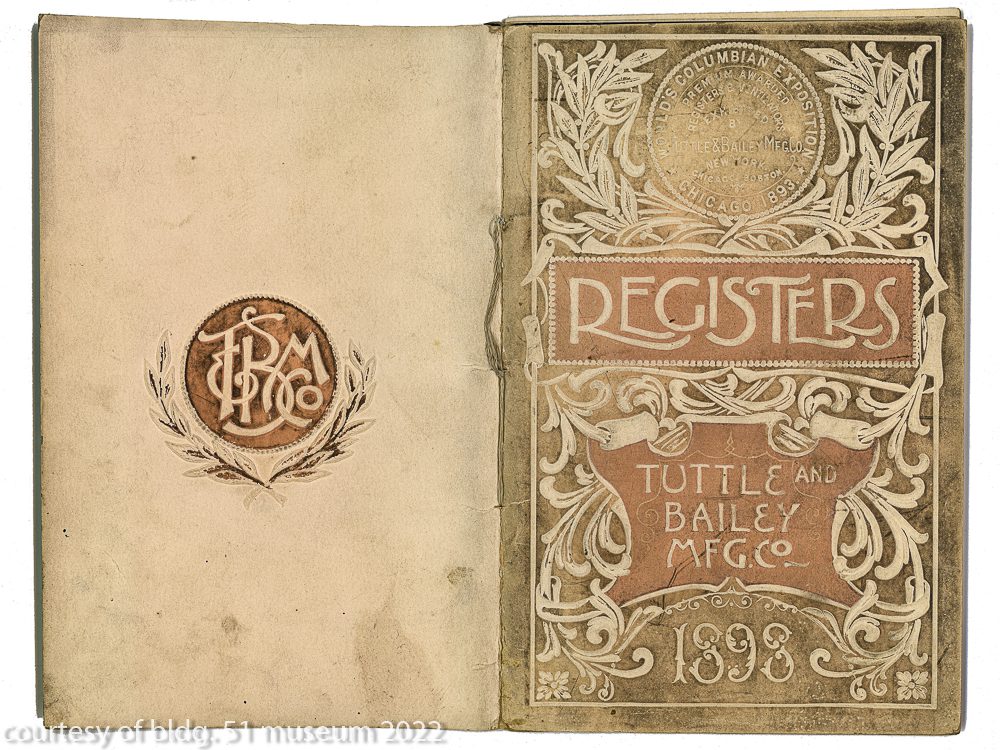 WORLD'S COLUMBIAN EXPOSITION
PREMIUM AWARDED
REGISTERS
EXHIBITED
BY
TUTTLE & BAILEY MFG. CO.
NEW YORK
CHICAGO BOSTON
CHICAGO 1893
REGISTERS
TUTTLE AND
BAILEY
MFG. CO.
1898
T&B M
MFG CO
courtesy of bldg. 51 museum 2022